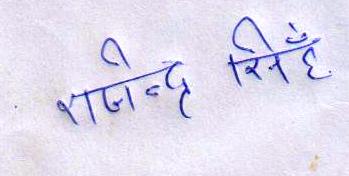 राजिन्द्र सिहँ